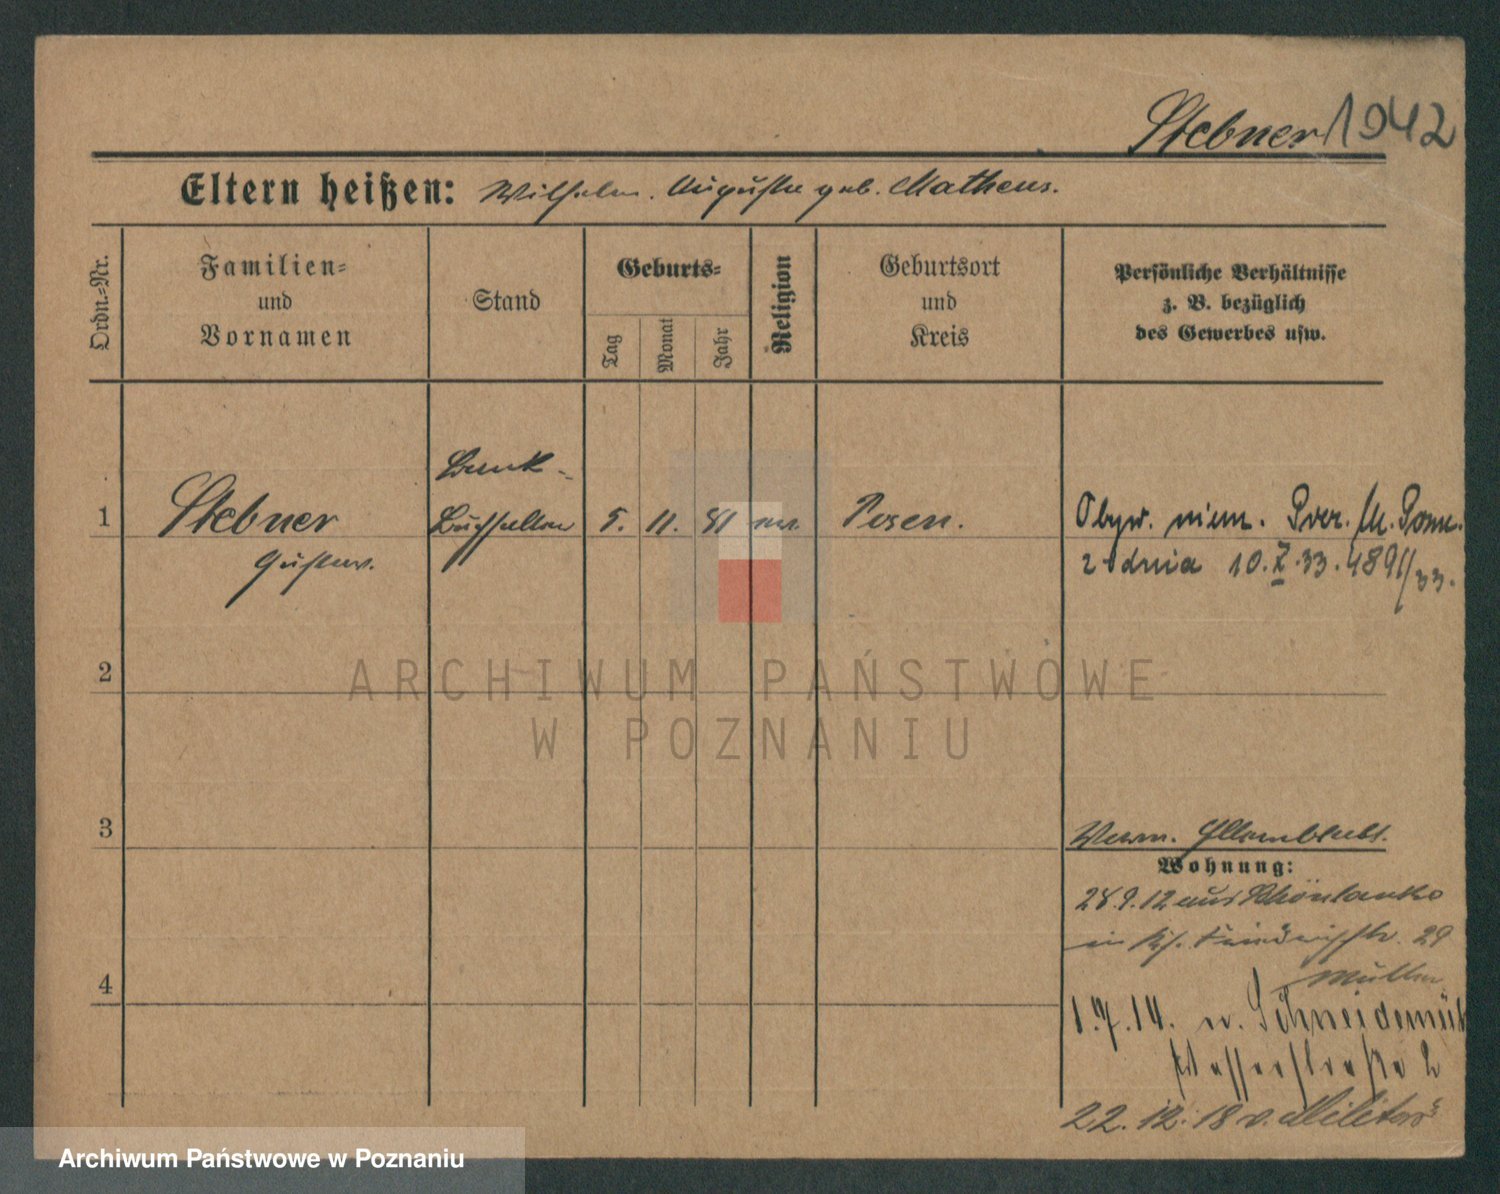 Stebner 1942
Eltern heißen: Wilhelm. Auguste geb. Matheus.
Ordn.-Nr.
Familien-
und
Vornamen
Stand
Geburts-
Tag
Monat
Jahr
Religion
Geburtsort
und
Kreis
Persönliche Verhältnisse
z. B. bezüglich
des Gewerbes usw.
1
Stebner
Gustav.
Bank-
Buchhalter
5. 11. 81
Posen.
Obyw. niem.
z dnia 10.X.33. 4891/33.
2
3
4
Wohnung:
28.9.12 aus Schönlanke
29
Müller
1.7.14. n. Schneidemühl
Wasserstraße 2
22.12.18 v. Militär
ARCHIWUM PAŃSTWOWE
W POZNANIU
Archiwum Państwowe w Poznaniu